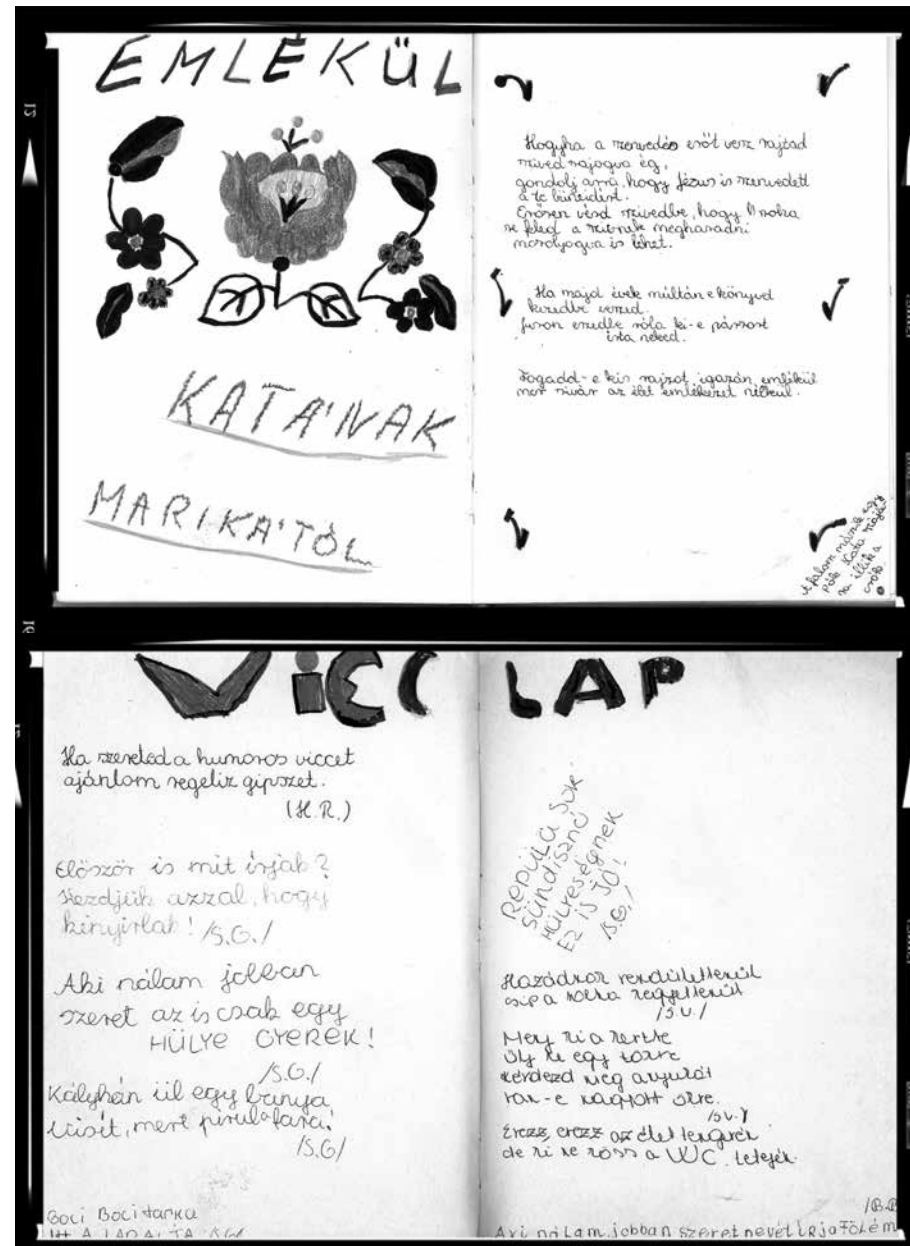 EMLÉKÜL
KATÁNAK
MARIKÁTÓL
Hogyha a szenvedés erőt vesz rajtad
szived sajogva ég,
gondolj arra, hogy Jézus is szenvedett
a te büneidért.
Erősen vésd szivedbe, hogy soha
se feled a szivnek meghasadni
mosolyogva is lehet.
Ha majd évek múltán e könyved
kezedbe veszed.
jusson eszedbe róla ki-e pársort
irta neked.
Fogadd-e kis rajzot igazán emlékül
mer sivár az élet emlékezet nélkül.
A falom mászik egy
pók Kata
ra illik a
csók.
VICC LAP
Ha szereted a humoros viccet
ajánlom regeliz gipszet.
(H.R.)
Először is mit irjak?
Kezdjük azzal, hogy
kinyirlak! /S.G./
Aki nálam jobban
szeret az is csak egy
HÜLYE GYEREK!
/S.G./
Kályhán ül egy banya
vicsit, mert pirul a fara!
/S.G/
Boci Boci tarka
REPÜL A SÜK
SÜNDISZNÓ
HÜLYESÉGNEK
EZ IS JÓ!
/S.G./
Hazádnak rendületlenül
/S.V./
Meny ki a kertbe
ülj le egy
kérdezd meg anyukát
van-e
/S.V./
Evezz, evezz az élet tengerén
de ki ne köss a WC tetején.
/B.B
Aki nálam jobban szeret nevét irja fölém